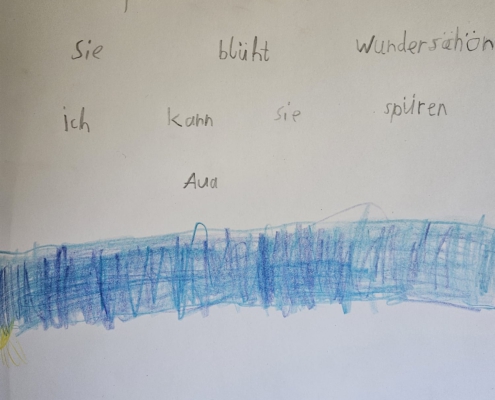 Sie blüht Wundersähön
ich kann sie spüren
Aua